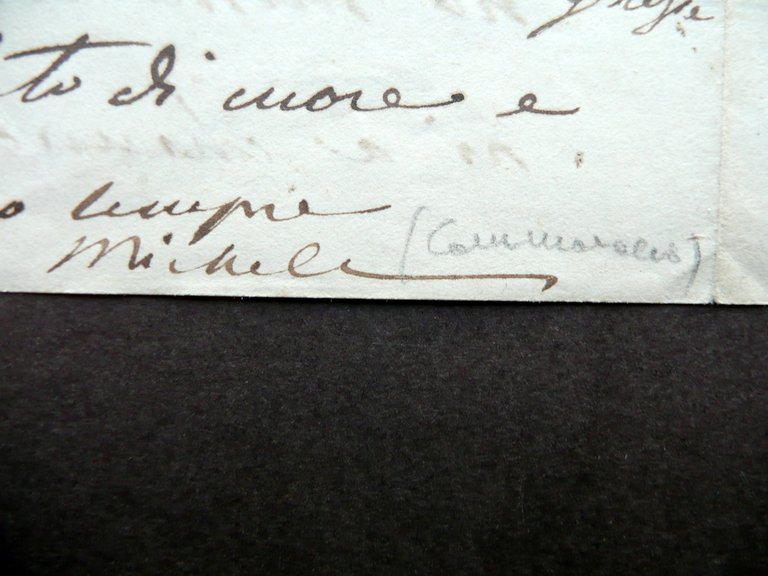 to di cuore e
o sempre
Michele (Cammarano)